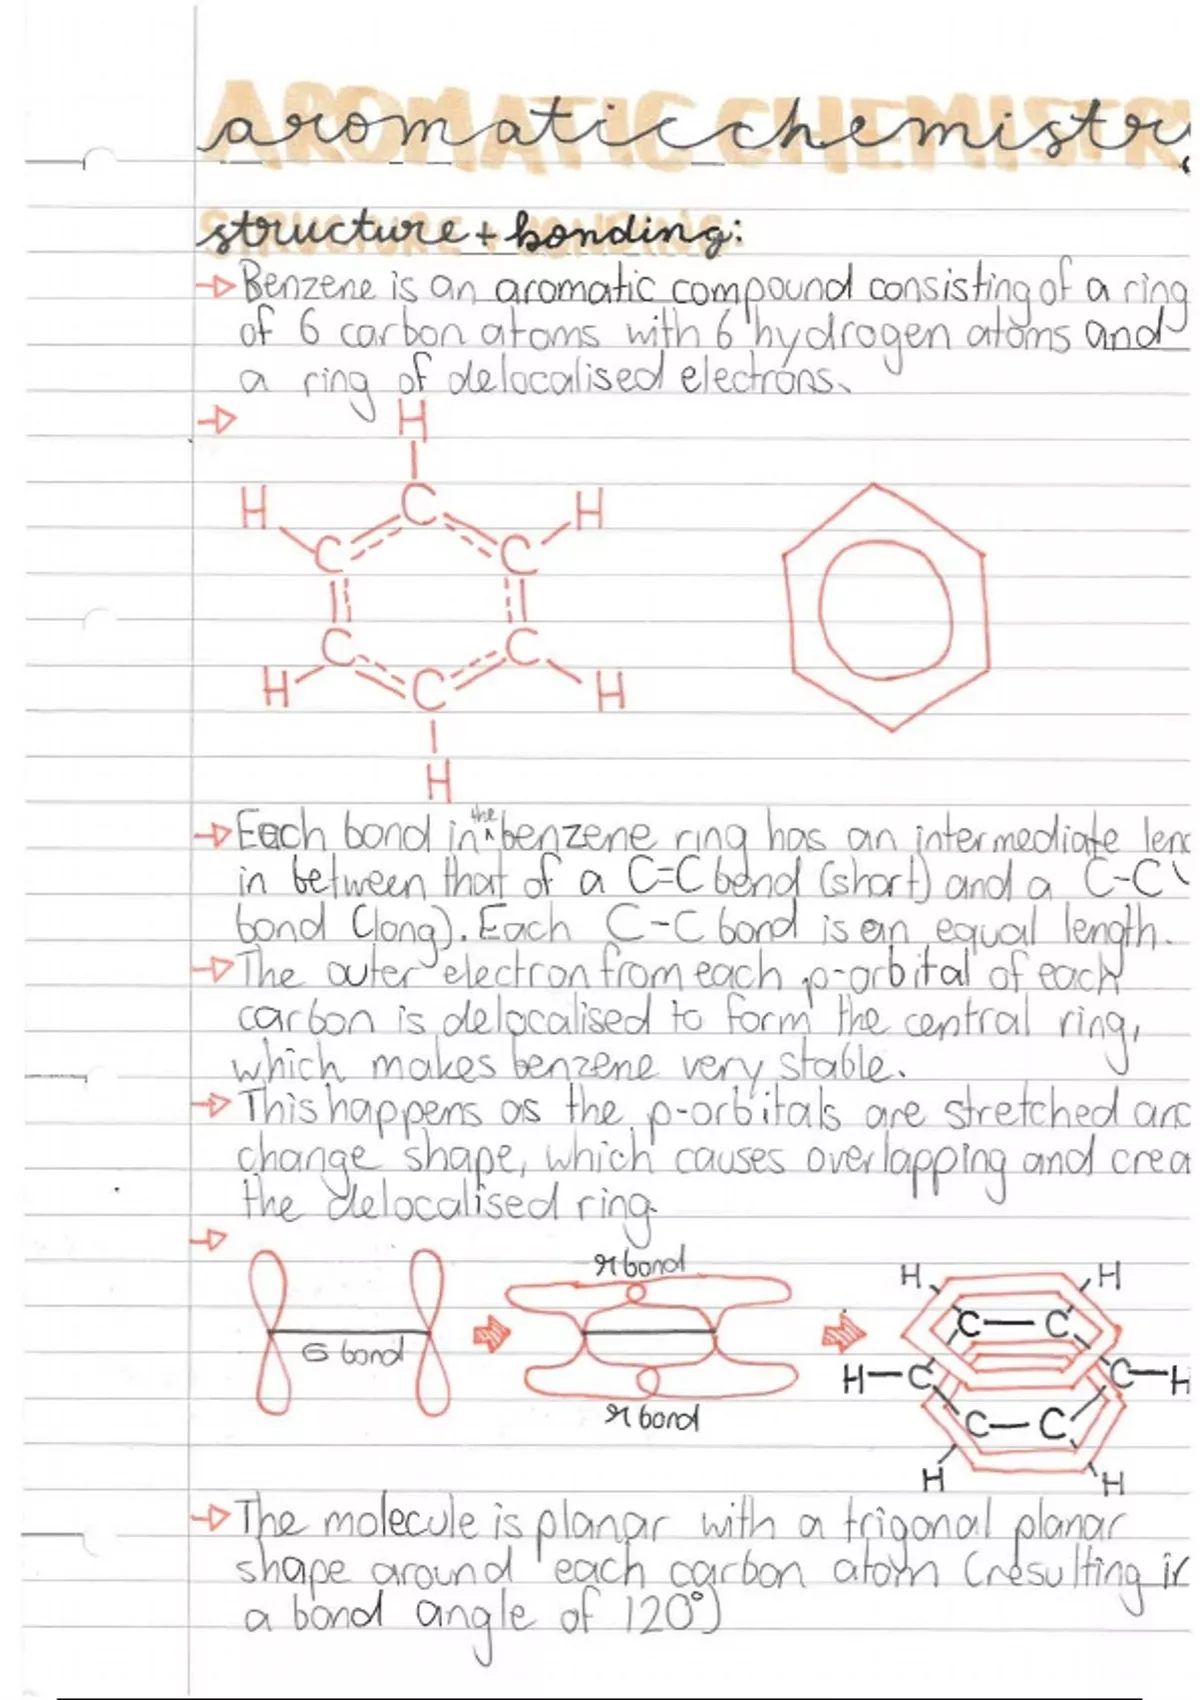 AROMATIC CHEMISTR
aromatic chemistry
STRUCTURE + BONDING:
structure + bonding:
→ Benzene is an aromatic compound consisting of a ring
of 6 carbon atoms with 6 hydrogen atoms and
a ring of delocalised electrons.
→
H
H C H
C C
C C
H C H
H
→ Each bond in the benzene ring has an intermediate leng
in between that of a C=C bond (short) and a C-C
bond (long). Each C-C bond is an equal length.
→ The outer electron from each p-orbital of each
carbon is delocalised to form the central ring,
which makes benzene very stable.
→ This happens as the p-orbitals are stretched and
change shape, which causes overlapping and crea
the delocalised ring.
→
π bond
σ bond
π bond
H H
C—C
H—C C—H
C—C
H H
→ The molecule is planar with a trigonal planar
shape around each carbon atom (resulting in
a bond angle of 120°)